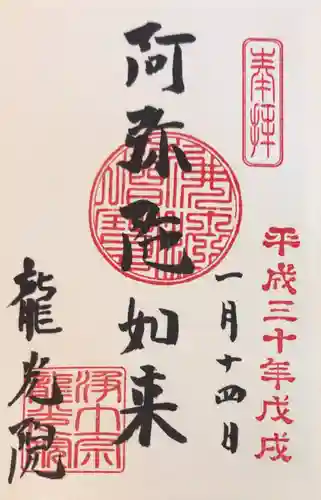 奉拝
平成三十年戊戌
一月十四日
阿弥陀如来
佛法僧寶
龍光院
浄土宗
龍光院